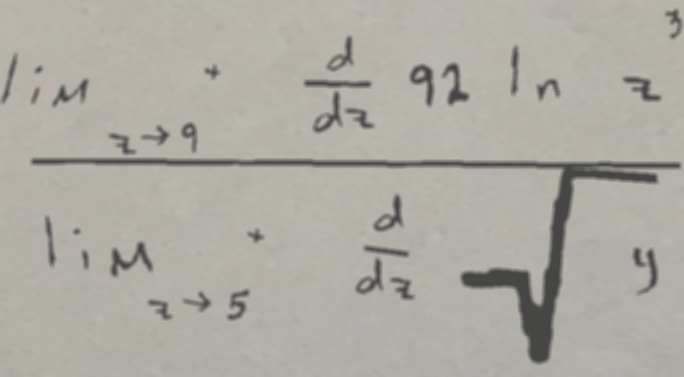 lim_{z→9} · d/dz 92 ln z^3
lim_{z→5} · d/dz √y